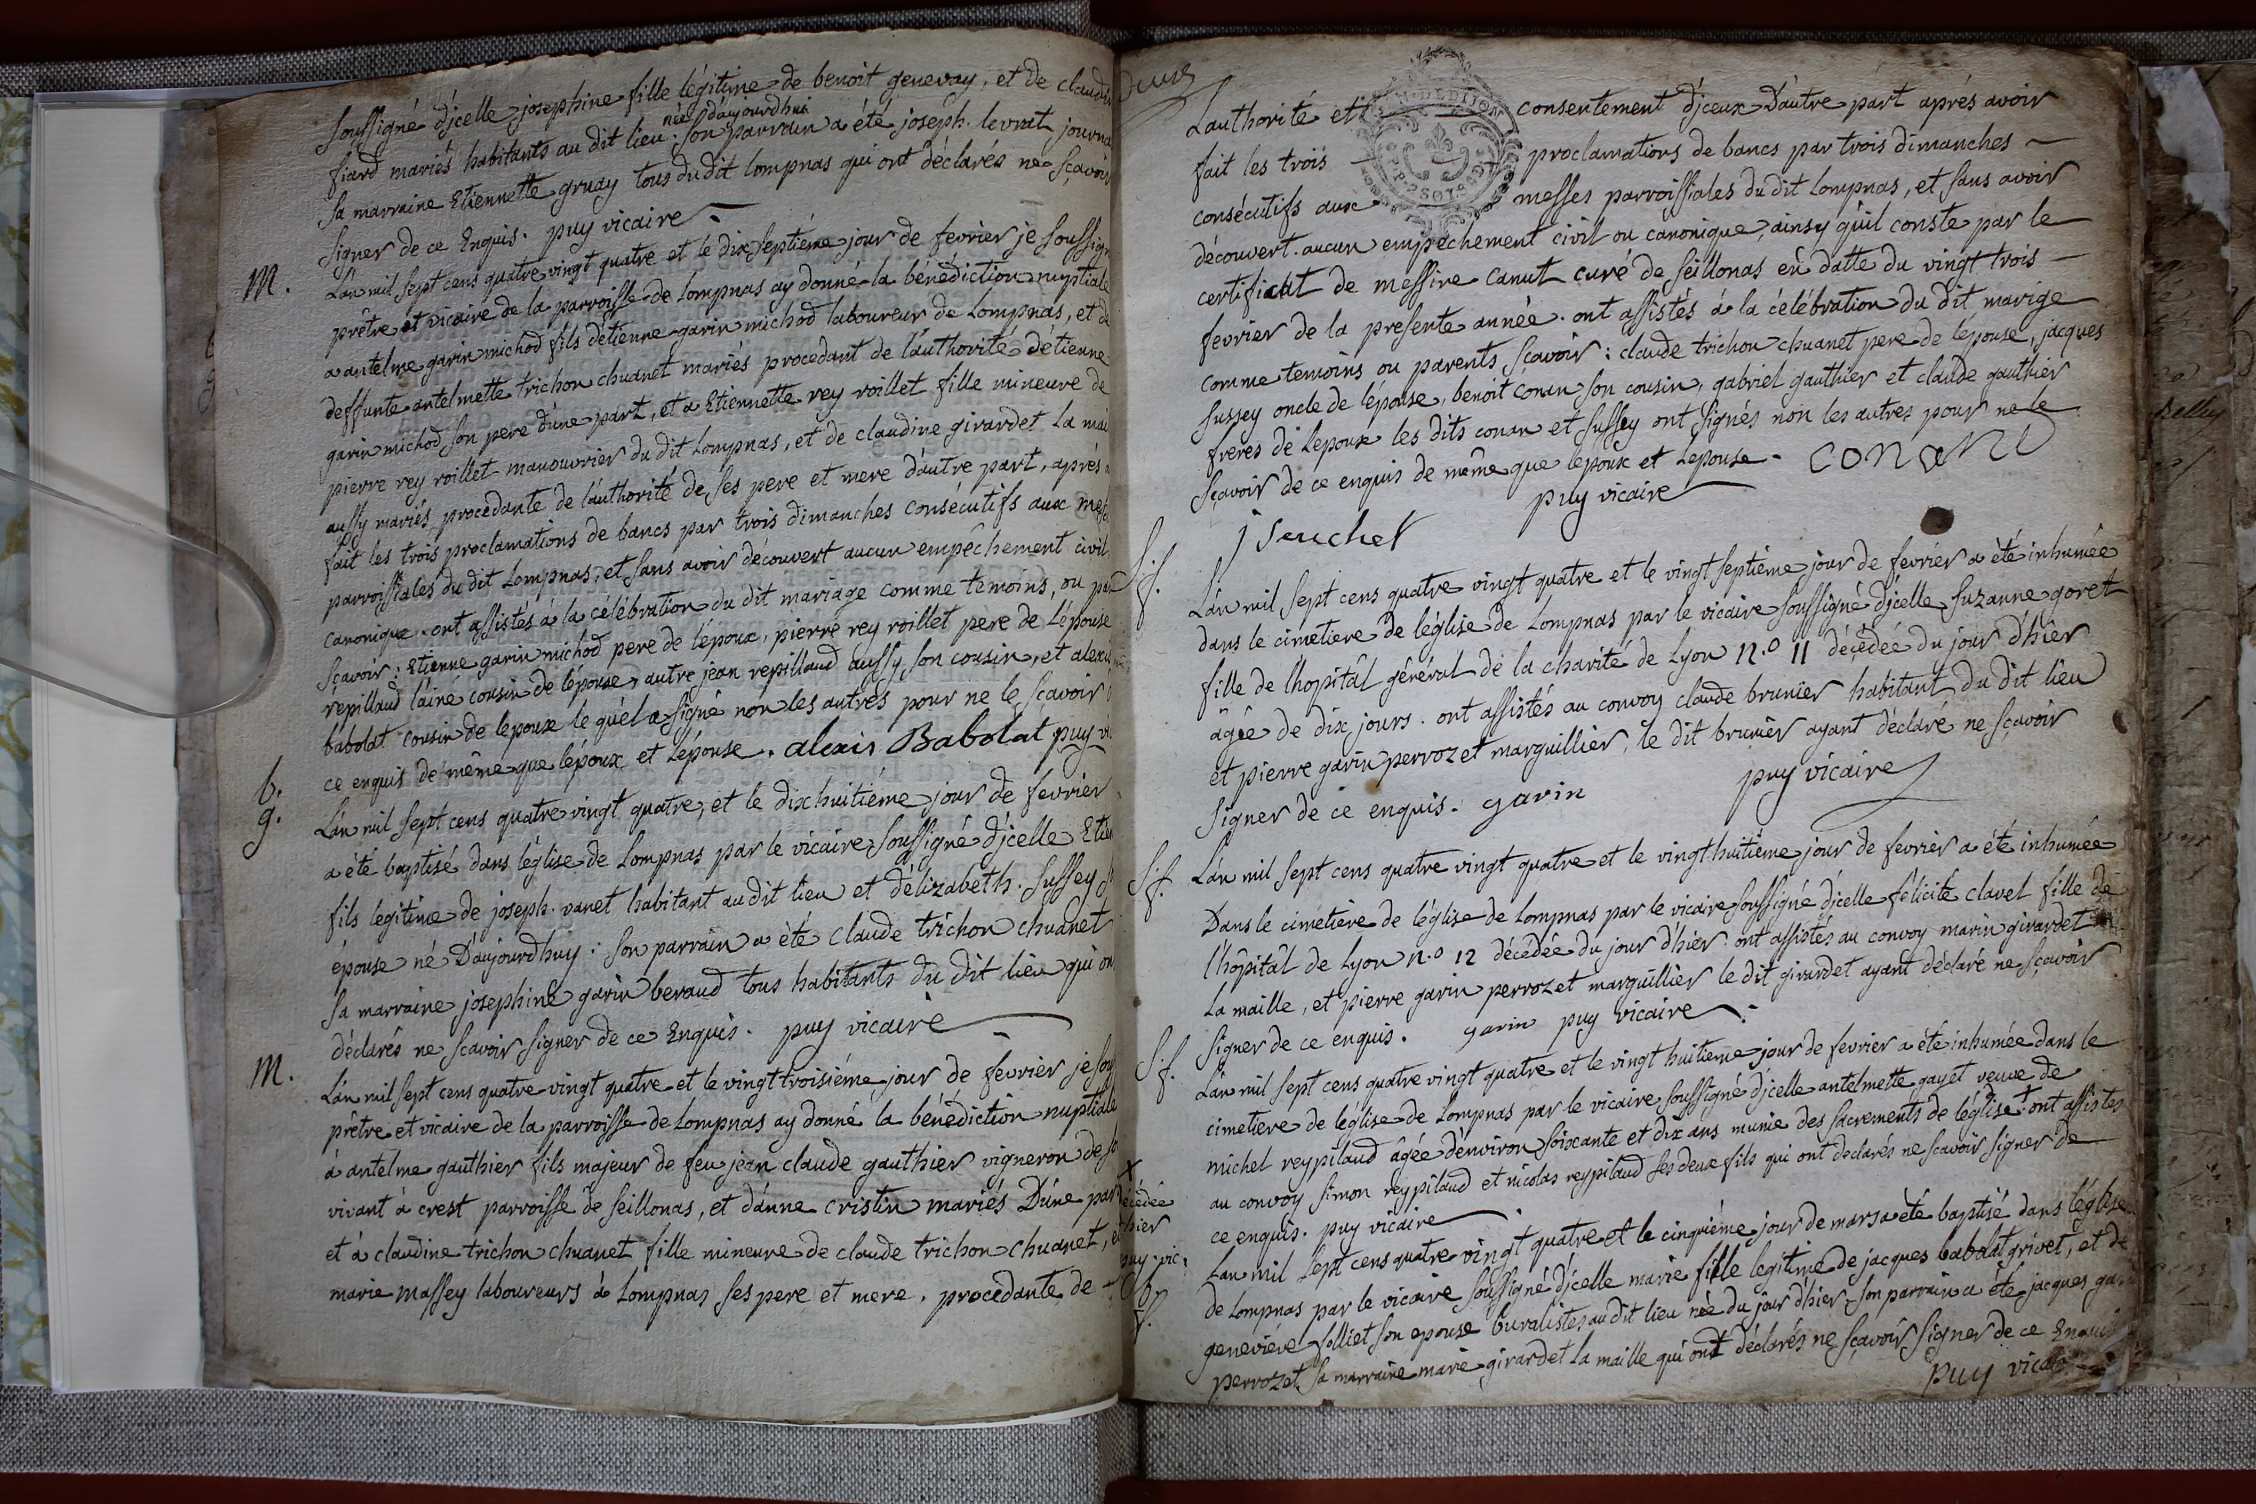 soussigné d'jcelle josephine fille légitime de benoit genevay, et de claudin
fiard mariés habitants au dit lieu née d'aujourdhui. son parrain a été joséph levrat journa
sa marraine Etiennette gruay tous du dit lompnas qui ont déclarés ne sçavoir
signer de ce Enquis. puy vicaire
M.
L'an mil sept cens quatre vingt quatre et le dix septiéme jour de fevrier je soussign
prêtre et vicaire de la parroisse de lompnas ay donné la bénédiction nuptiale
a antelme garin michod fils d'etienne garin michod laboureur de Lompnas, et de
deffunte antelmette trichon chuanet mariés procedant de l'authorité d'étienne
garin michod son pere d'une part, et a Etiennette rey roillet fille mineure de
pierre rey roillet manouvrier du dit Lompnas, et de claudine girardet la mai
aussy mariés procedante de l'authorité de ses pere et mere d'autre part, aprés a
fait les trois proclamations de bancs par trois dimanches consécutifs aux mess
parroissiales du dit Lompnas, et sans avoir découvert aucun empêchement civil
canonique ont assistés à la célébration du dit mariage comme temoins, ou par
sçavoir: Etienne garin michod pere de l'époux, pierre rey roillet pere de L'épouse
repillaud l'ainé cousin de l'épouse, autre jean repillaud aussy son cousin, et alexis
babolat cousin de lepoux le quel a signé non les autres pour ne le sçavoir
ce enquis de même que l'époux et L'épouse. alexis Babolat puy vi
b.
g.
L'an mil sept cens quatre vingt quatre, et le dix huitiéme jour de fevrier
a été baptisé dans léglise de Lompnas par le vicaire soussigné d'jcelle Etien
fils legitime de joseph vanet habitant au dit lieu et d'élizabeth sussey s
épouse né D'aujourdhuy: son parrain a été Claude trichon chuanet
sa marraine josephine garin beraud tous habitants du dit lieu qui on
déclarés ne scavoir signer de ce Enquis. puy vicaire
M.
L'an mil sept cens quatre vingt quatre et le vingt troisiéme jour de fevrier je sou
prêtre et vicaire de la parroisse de Lompnas ay donné la bénédiction nuptiale
à antelme gauthier fils majeur de feu jean claude gauthier vigneron de so
vivant à crest parroisse de seillonas, et d'anne cristin mariés D'une part
et à claudine trichon chuanet fille mineure de claude trichon chuanet, et
marie massey laboureurs à Lompnas ses pere et mere, procedante de
L'authorité et consentement d'jceux D'autre part aprés avoir
fait les trois proclamations de bancs par trois dimanches
consécutifs aux messes parroissiales du dit Lompnas, et sans avoir
découvert aucun empechement civil ou canonique, ainsy qu'il conste par le
certificat de messire canut curé de seillonas en datte du vingt trois
fevrier de la presente année. ont assistés à la célébration du dit marige
comme temoins ou parents sçavoir: claude trichon chuanet pere de lepouse, jacques
sussey oncle de l'épouse, benoit conan son cousin, gabriel gauthier et claude gauthier
freres de Lepoux les dits conan et sussey ont signés non les autres pour ne le
sçavoir de ce enquis de même que lepoux et Lepouse. conand
puy vicaire
S.
f.
L'an mil sept cens quatre vingt quatre et le vingt septiéme jour de fevrier a été inhumée
dans le cimetiere de léglise de Lompnas par le vicaire soussigné d'jcelle suzanne goret
fille de lhopitâl général de la charité de Lyon n.o 11 décédée du jour d'hier
agée de dix jours. ont assistés au convoy claude brunier habitant du dit lieu
et pierre garin perrozet marguillier, le dit brunier ayant déclaré ne sçavoir
signer de ce enquis. garin puy vicaire
S.
f.
L'an mil sept cens quatre vingt quatre et le vingt huitiéme jour de fevrier a été inhumée
Dans le cimetiere de léglise de Lompnas par le vicaire soussigné d'jcelle félicité clavel fille de
l'hopitâl de Lyon n.o 12 décedée du jour d'hier. ont assistés au convoy marin girardet
La maille, et pierre garin perrozet marguillier le dit girardet ayant déclaré ne sçavoir
signer de ce enquis. garin puy vicaire
S.
f.
L'an mil sept cens quatre vingt quatre et le vingt huitieme jour de fevrier a été inhumée dans le
cimetiere de léglise de Lompnas par le vicaire soussigné d'jcelle antelmette gayet veuve de
michel reypilaud âgée d'environ soixante et dix ans munie des sacrements de léglise + ont assistés
au convoy simon reypilaud et nicolas reypilaud ses deux fils qui ont declarés ne scavoir signer de
ce enquis. puy vicaire
+
décédée
hier
puy vic:
b.
f.
L'an mil sept cens quatre vingt quatre et le cinquiéme jour de mars a été baptisé dans léglise
de Lompnas par le vicaire soussigné d'jcelle marie fille legitime de jacques babolat grivet, et de
geneviéve folliet son epouse buralistes au dit lieu née du jour d'hier, son parrain a été jacques gar
perrozet sa marraine marie girardet la maille qui ont déclarés ne sçavoir signer de ce Enquis
puy vicaire